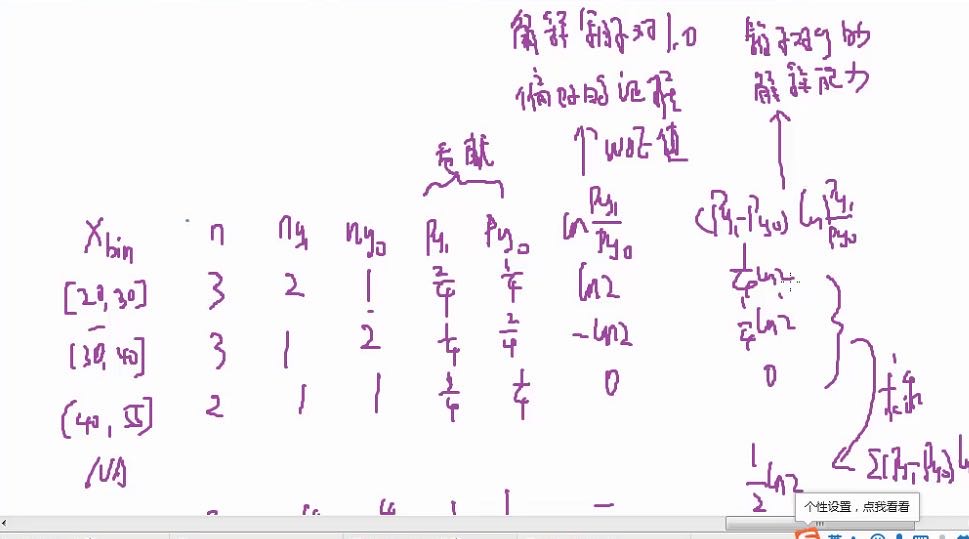 解释箱子对1,0 箱子对y的
偏好的证据 解释能力
WOE值
贡献
X_bin n n_y1 n_y0 P_y1 P_y0 ln P_y1/P_y0 (P_y1-P_y0) ln P_y1/P_y0
[20,30] 3 2 1 2/4 1/4 ln2 1/4 ln2
[30,40] 3 1 2 1/4 2/4 -ln2 1/4 ln2
(40,55] 2 1 1 1/4 0 0
求和
NA 1/2 ln2 Σ(P_y1-P_y0)
个性设置，点我看看